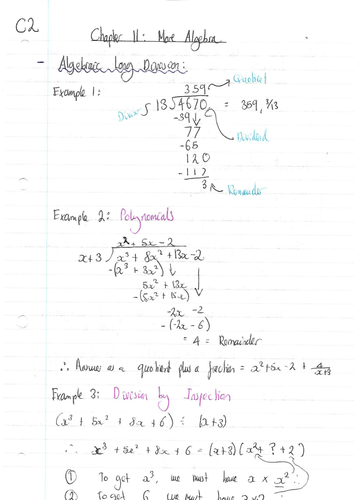 C2
Chapter 11: More Algebra
- Algebraic Long Division:
Example 1:
359 Quotient
Divisor 13 4670 = 359, 3/13
-39
77 Dividend
-65
120
-117
3 Remainder
Example 2: Polynomials
x² + 5x - 2
x+3 x³ + 8x² + 13x - 2
-(x³ + 3x²)
5x² + 13x
-(5x² + 15x)
-2x - 2
-(-2x - 6)
= 4 = Remainder
∴ Answer as a quotient plus a fraction = x² + 5x - 2 + 4/x+3
Example 3: Division by Inspection
(x³ + 5x² + 8x + 6) ÷ (x+3)
∴ x³ + 5x² + 8x + 6 = (x+3)(x² + ? + 2)
① To get x³, we must have x × x²
② To get 6 we must have 3×2